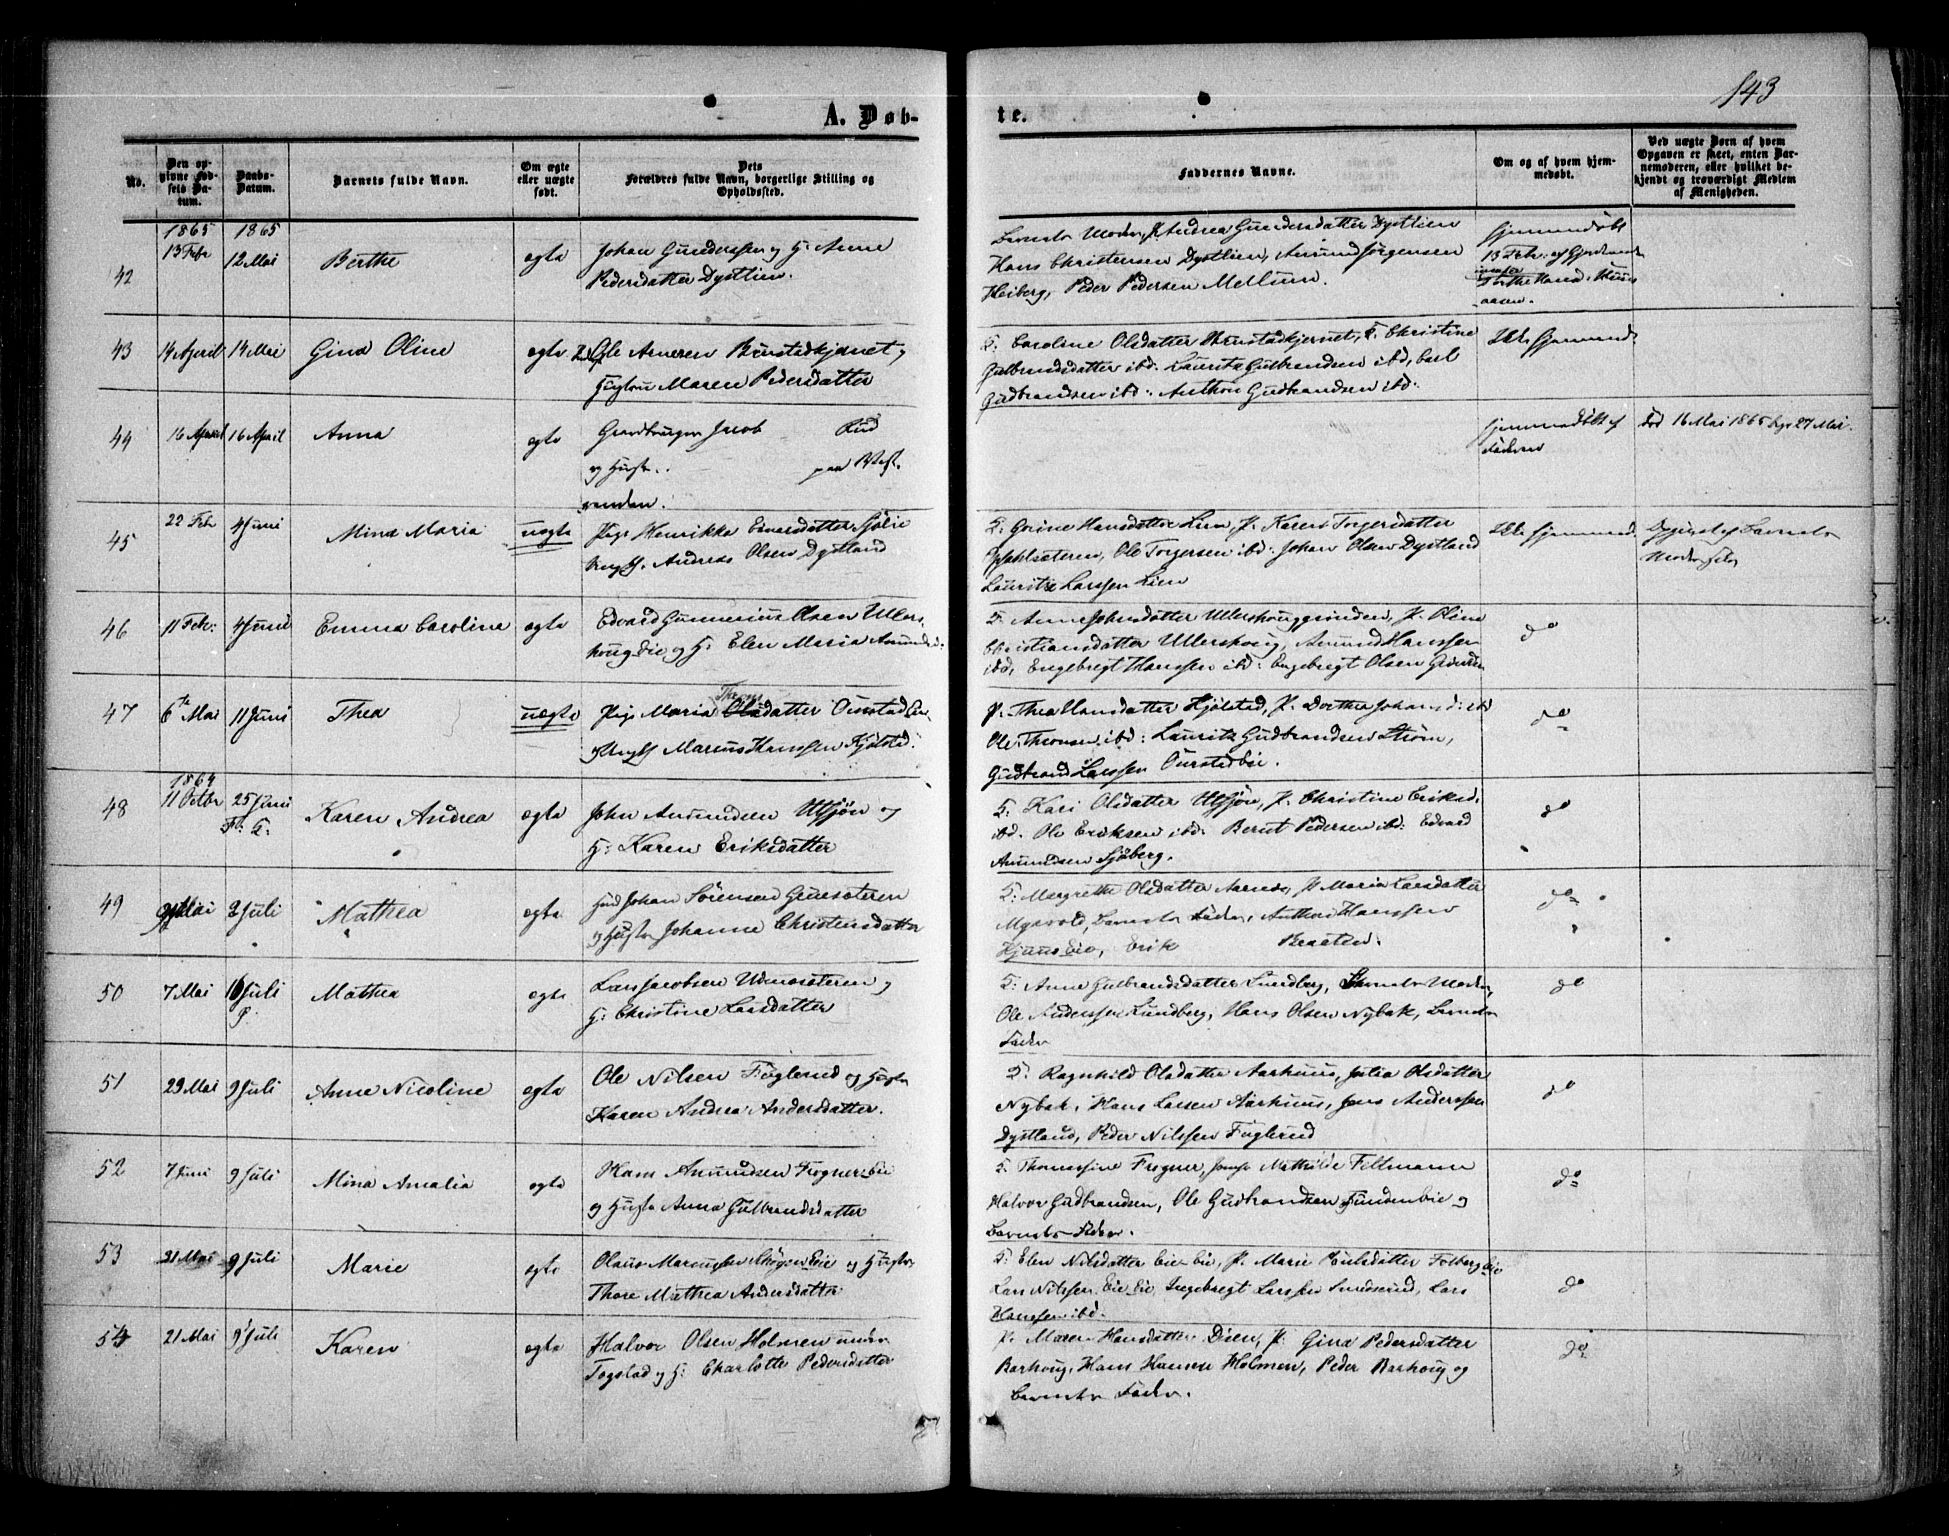 143
A. Døb-
te.
No.
Den op-
givne Fød-
sels Da-
tum.
Daabs-
Datum.
Barnets fulde Navn.
Om ægte
eller uægte
født.
Dets
Forældres fulde Navn, borgerlige Stilling og
Opholdssted.
Faddernes Navne.
Om og af hvem hjem-
medøbt.
Ved uægte Børn af hvem
Opgaven er skeet, enten Bar-
nemoderen, eller hvilket be-
kjendt og troværdigt Medlem
af Menigheden.
42
1865
13 Febr
1865
12 Mai
Berthe
ægte
Johan Gundersen og H. Anne
Pedersdatter Dystlien.
Barnets Moder, P. Andrea Gundersdatter Dystlien
Hans Christensen Dystlien, Amund Jørgensen
Heiberg, Peder Pedersen Mellum.
Hjemmedøbt
13 Febr. af
aasen.
43
14 April
14 Mai
Gina Oline
ægte
Ole Arnesen Brustadkjernet og
Hustru Maren Pedersdatter
G. Caroline Olsdatter Brustadkjernet, P. Christine
Gulbrandsdatter ibd: Lauritz Gulbrandsen ibd, Carl
Gudbrandsen ibd: Anthon Gudbrandsen ibd:
Ikke hjemmed.
44
16 April
16 April
Anna
ægte
Jacob Rud
og Hustr. paa Vest-
randen.
Hjemmedøbt af
Faderen
død 16 Mai 1865 27 Mai.
45
22 Febr
4 Juni
Mina Maria
uægte
Pige Henrikka Edvarsdatter Sjølie
Ungk. Andreas Olsen Dystland
G: Gorine Hansdatter Lien, P. Karen Torgersdatter
Ole Torgersen ibd: Johan Olsen Dystland
Lauritz Larssen Lien
Ikke hjemmed.
Opgivet af Barnets
Moder
46
11 Febr:
4 Juni
Emma Caroline
ægte
Edvard Gunnerius Olsen Ullers-
houg Eie og H: Elen Maria Amundsd:
G. Anne Johnsdatter Ullershouggrinden, P. Oline
Christiansdatter Ullershoug, Amund Hanssen
ibd, Engebregt Hanssen ibd: Engebregt Olsen Grinden
do
47
6te Mai
11 Juni
Thea
uægte
Throns
Pige Maria Olsdatter Ourstad Eie
og Ungk Marius Hanssen Hjølstad.
P. Thea Hansdatter Hjølstad, P. Dorthea Johansd: ibd
Ole Thronsen ibd: Lauritz Gudbrandsen Strøm,
Gudbrand Larssen Ourstadeie.
do
48
1864
11 Octbr
25 Juni
Fl: G:
Karen Andrea
ægte
John Amundsen Utsjøn og
H: Karen Eriksdatter
G: Kari Olsdatter Utsjøn, P. Christine Eriksd:
ibd. Ole Eriksen ibd. Bernt Pedersen ibd: Edvard
Amundsen Sjøberg.
do
49
Mai
2 Juli
Mathea
ægte
Johan Sørensen Gruesæteren
og Hustr Johanne Christensdatter
G: Margrethe Olsdatter Aarnes, P Maria Larsdatter
Myrvold, Barnets Fader, Anthon Hanssen
Hjønseie, Erik Braaten.
do
50
7 Mai
16 Juli
P.
Mathea
ægte
Lars Jacobsen Udnæsæteren og
H: Christine Larsdatter
G: Anne Gulbrandsdatter Lundberg, Barnets Moder,
Ole Anderssen Lundberg, Hans Olsen Nybak, Barnets
Fader
do
51
29 Mai
9 Juli
Anne Nicoline
ægte
Ole Nilsen Fuglerud og Hustr
Karen Andrea Andersdatter.
G. Ragnhild Olsdatter Aarhuus, Julia Olsdatter
Nybak, Hans Larsen Aarhuus, Jens Anderssen
Dystland, Peder Nilssen Fuglerud
do
52
7 Juni
9 Juli
Mina Amalia
ægte
Hans Amundsen Frognereie
og Hustr Anna Gulbrandsdatter
G. Thomassine Frogner, Jomfr Mathilde Feltmann
Halvor Gudbrandsen, Ole Gudbrandsen Sundeneie og
Barnets Fader.
do
53
21 Mai
9 Juli
Marie
ægte
Olaus Marcussen Skøgen Eie og Hustr
Thore Mathea Andersdatter
G: Elen Nilsdatter Eie Eie, P. Marie Poulsdatter Folbergeie
Lars Nilssen Eie Eie, Ingebregt Larssen Sundserud, Lars
Hanssen ibd.
do
54
21 Mai
9 Juli
Karen
ægte
Halvor Olsen Holmen under
Togstad og H: Charlotte Pedersdatter
P. Maren Hansdatter Disen, P: Gina Pedersdatter
Barhoug, Hans Hansen Holmen, Peder Barhoug og
Barnets Fader.
do